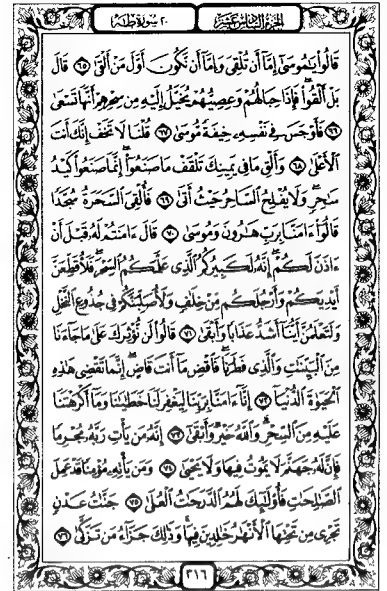 الجزء السادس عشر ٢٠ سورة طه
قَالُوا۟ يَـٰمُوسَىٰٓ إِمَّآ أَن تُلْقِىَ وَإِمَّآ أَن نَّكُونَ أَوَّلَ مَنْ أَلْقَىٰ ٦٥ قَالَ
بَلْ أَلْقُوا۟ ۖ فَإِذَا حِبَالُهُمْ وَعِصِيُّهُمْ يُخَيَّلُ إِلَيْهِ مِن سِحْرِهِمْ أَنَّهَا تَسْعَىٰ
٦٦ فَأَوْجَسَ فِى نَفْسِهِۦ خِيفَةً مُّوسَىٰ ٦٧ قُلْنَا لَا تَخَفْ إِنَّكَ أَنتَ
ٱلْأَعْلَىٰ ٦٨ وَأَلْقِ مَا فِى يَمِينِكَ تَلْقَفْ مَا صَنَعُوٓا۟ ۖ إِنَّمَا صَنَعُوا۟ كَيْدُ
سَـٰحِرٍ ۖ وَلَا يُفْلِحُ ٱلسَّاحِرُ حَيْثُ أَتَىٰ ٦٩ فَأُلْقِىَ ٱلسَّحَرَةُ سُجَّدًا
قَالُوٓا۟ ءَامَنَّا بِرَبِّ هَـٰرُونَ وَمُوسَىٰ ٧٠ قَالَ ءَامَنتُمْ لَهُۥ قَبْلَ أَنْ
ءَاذَنَ لَكُمْ ۖ إِنَّهُۥ لَكَبِيرُكُمُ ٱلَّذِى عَلَّمَكُمُ ٱلسِّحْرَ ۖ فَلَأُقَطِّعَنَّ
أَيْدِيَكُمْ وَأَرْجُلَكُم مِّنْ خِلَـٰفٍ وَلَأُصَلِّبَنَّكُمْ فِى جُذُوعِ ٱلنَّخْلِ
وَلَتَعْلَمُنَّ أَيُّنَآ أَشَدُّ عَذَابًا وَأَبْقَىٰ ٧١ قَالُوا۟ لَن نُّؤْثِرَكَ عَلَىٰ مَا جَآءَنَا
مِنَ ٱلْبَيِّنَـٰتِ وَٱلَّذِى فَطَرَنَا ۖ فَٱقْضِ مَآ أَنتَ قَاضٍ ۖ إِنَّمَا تَقْضِى هَـٰذِهِ
ٱلْحَيَوٰةَ ٱلدُّنْيَآ ٧٢ إِنَّآ ءَامَنَّا بِرَبِّنَا لِيَغْفِرَ لَنَا خَطَـٰيَـٰنَا وَمَآ أَكْرَهْتَنَا
عَلَيْهِ مِنَ ٱلسِّحْرِ ۗ وَٱللَّهُ خَيْرٌ وَأَبْقَىٰٓ ٧٣ إِنَّهُۥ مَن يَأْتِ رَبَّهُۥ مُجْرِمًا
فَإِنَّ لَهُۥ جَهَنَّمَ لَا يَمُوتُ فِيهَا وَلَا يَحْيَىٰ ٧٤ وَمَن يَأْتِهِۦ مُؤْمِنًا قَدْ عَمِلَ
ٱلصَّـٰلِحَـٰتِ فَأُو۟لَـٰٓئِكَ لَهُمُ ٱلدَّرَجَـٰتُ ٱلْعُلَىٰ ٧٥ جَنَّـٰتُ عَدْنٍ
تَجْرِى مِن تَحْتِهَا ٱلْأَنْهَـٰرُ خَـٰلِدِينَ فِيهَا ۚ وَذَٰلِكَ جَزَآءُ مَن تَزَكَّىٰ ٧٦
٣١٦